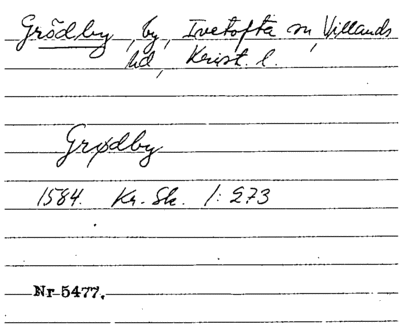 Grödby, by, Ivetofta sn, Villands
hd, Krist. l.
Grødby
1584. Kr. Sk. 1: 273
Nr 5477.